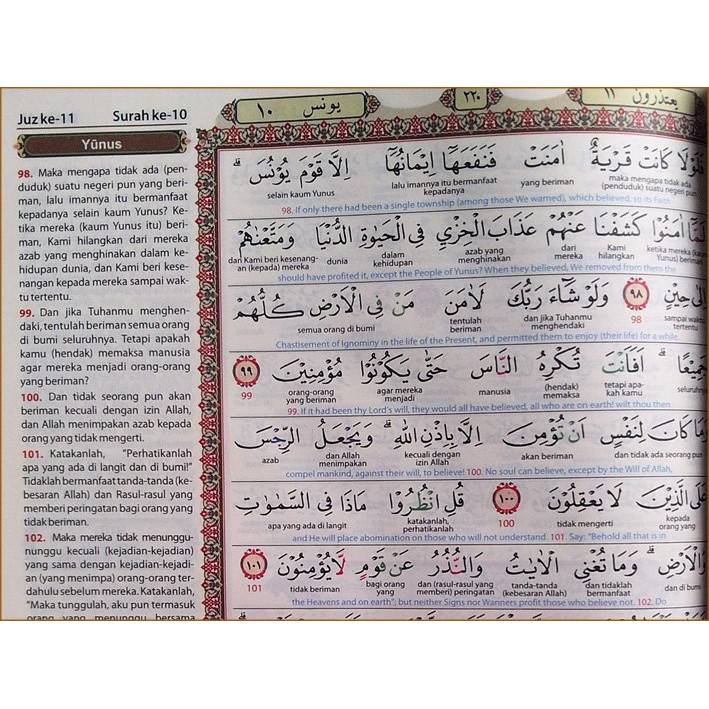 Juz ke-11 Surah ke-10
Yūnus
98. Maka mengapa tidak ada (pen-
duduk) suatu negeri pun yang beri-
man, lalu imannya itu bermanfaat
kepadanya selain kaum Yunus? Ke-
tika mereka (kaum Yunus itu) beri-
man, Kami hilangkan dari mereka
azab yang menghinakan dalam ke-
hidupan dunia, dan Kami beri kese-
nangan kepada mereka sampai wak-
tu tertentu.
99. Dan jika Tuhanmu menghen-
daki, tentulah beriman semua orang
di bumi seluruhnya. Tetapi apakah
kamu (hendak) memaksa manusia
agar mereka menjadi orang-orang
yang beriman?
100. Dan tidak seorang pun akan
beriman kecuali dengan izin Allah,
dan Allah menimpakan azab kepada
orang yang tidak mengerti.
101. Katakanlah, "Perhatikanlah
apa yang ada di langit dan di bumi!"
Tidaklah bermanfaat tanda-tanda (ke-
besaran Allah) dan Rasul-rasul yang
memberi peringatan bagi orang yang
tidak beriman.
102. Maka mereka tidak menunggu-
nunggu kecuali (kejadian-kejadian)
yang sama dengan kejadian-kejadi-
an (yang menimpa) orang-orang ter-
dahulu sebelum mereka. Katakanlah,
"Maka tunggulah, aku pun termasuk
orang yang menunggu bersama
يعتذرون ١١
٢٢٠
يونس ١٠
فَلَوْلَا كَانَتْ قَرْيَةٌ اٰمَنَتْ فَنَفَعَهَآ اِيْمَانُهَآ اِلَّا قَوْمَ يُوْنُسَۗ
maka mengapa tidak ada (penduduk) suatu negeri pun
yang beriman
lalu imannya itu bermanfaat kepadanya
selain kaum Yunus
98. If only there had been a single township (among those We warned), which believed, so its Faith
لَمَّآ اٰمَنُوْا كَشَفْنَا عَنْهُمْ عَذَابَ الْخِزْيِ فِى الْحَيٰوةِ الدُّنْيَا وَمَتَّعْنٰهُمْ
ketika mereka (kaum Yunus) beriman
Kami hilangkan
dari mereka
azab yang menghinakan
dalam kehidupan
dunia
dan Kami beri kesenang-an (kepada) mereka
should have profited it, except the People of Yunus? When they believed, We removed from them the
اِلٰى حِيْنٍ ٩٨ وَلَوْ شَآءَ رَبُّكَ لَاٰمَنَ مَنْ فِى الْاَرْضِ كُلُّهُمْ
sampai waktu tertentu
98
dan jika Tuhanmu menghendaki
tentulah beriman
semua orang di bumi
Chastisement of ignominy in the life of the Present, and permitted them to enjoy (their life) for a while.
جَمِيْعًاۗ اَفَاَنْتَ تُكْرِهُ النَّاسَ حَتّٰى يَكُوْنُوْا مُؤْمِنِيْنَ ٩٩
seluruhnya
tetapi apa-kah kamu
(hendak) memaksa
manusia
agar mereka menjadi
orang-orang yang beriman
99
99. If it had been thy Lord's will, they would all have believed, all who are on earth! wilt thou then
وَمَا كَانَ لِنَفْسٍ اَنْ تُؤْمِنَ اِلَّا بِاِذْنِ اللّٰهِۗ وَيَجْعَلُ الرِّجْسَ
dan tidak ada seorang pun
akan beriman
kecuali dengan izin Allah
dan Allah menimpakan
azab
compel mankind, against their will, to believe! 100. No soul can believe, except by the Will of Allah,
عَلَى الَّذِيْنَ لَا يَعْقِلُوْنَ ١٠٠ قُلِ انْظُرُوْا مَاذَا فِى السَّمٰوٰتِ
kepada orang yang
tidak mengerti
100
katakanlah, perhatikanlah
apa yang ada di langit
and He will place abomination on those who will not understand. 101. Say: "Behold all that is in
وَالْاَرْضِۗ وَمَا تُغْنِى الْاٰيٰتُ وَالنُّذُرُ عَنْ قَوْمٍ لَّا يُؤْمِنُوْنَ ١٠١
dan di bumi
dan tidaklah bermanfaat
tanda-tanda (kebesaran Allah)
dan (rasul-rasul yang memberi) peringatan
bagi orang yang
tidak beriman
101
the Heavens and on earth"; but neither Signs nor Wanners profit those who believe not. 102. Do